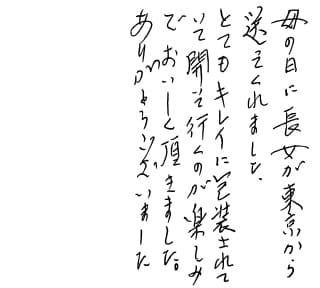 母の日に長女が東京から
送ってくれました。
とてもキレイに包装されて
いて開いて行くのが楽しみ
でおいしく頂きました。
ありがとうございました